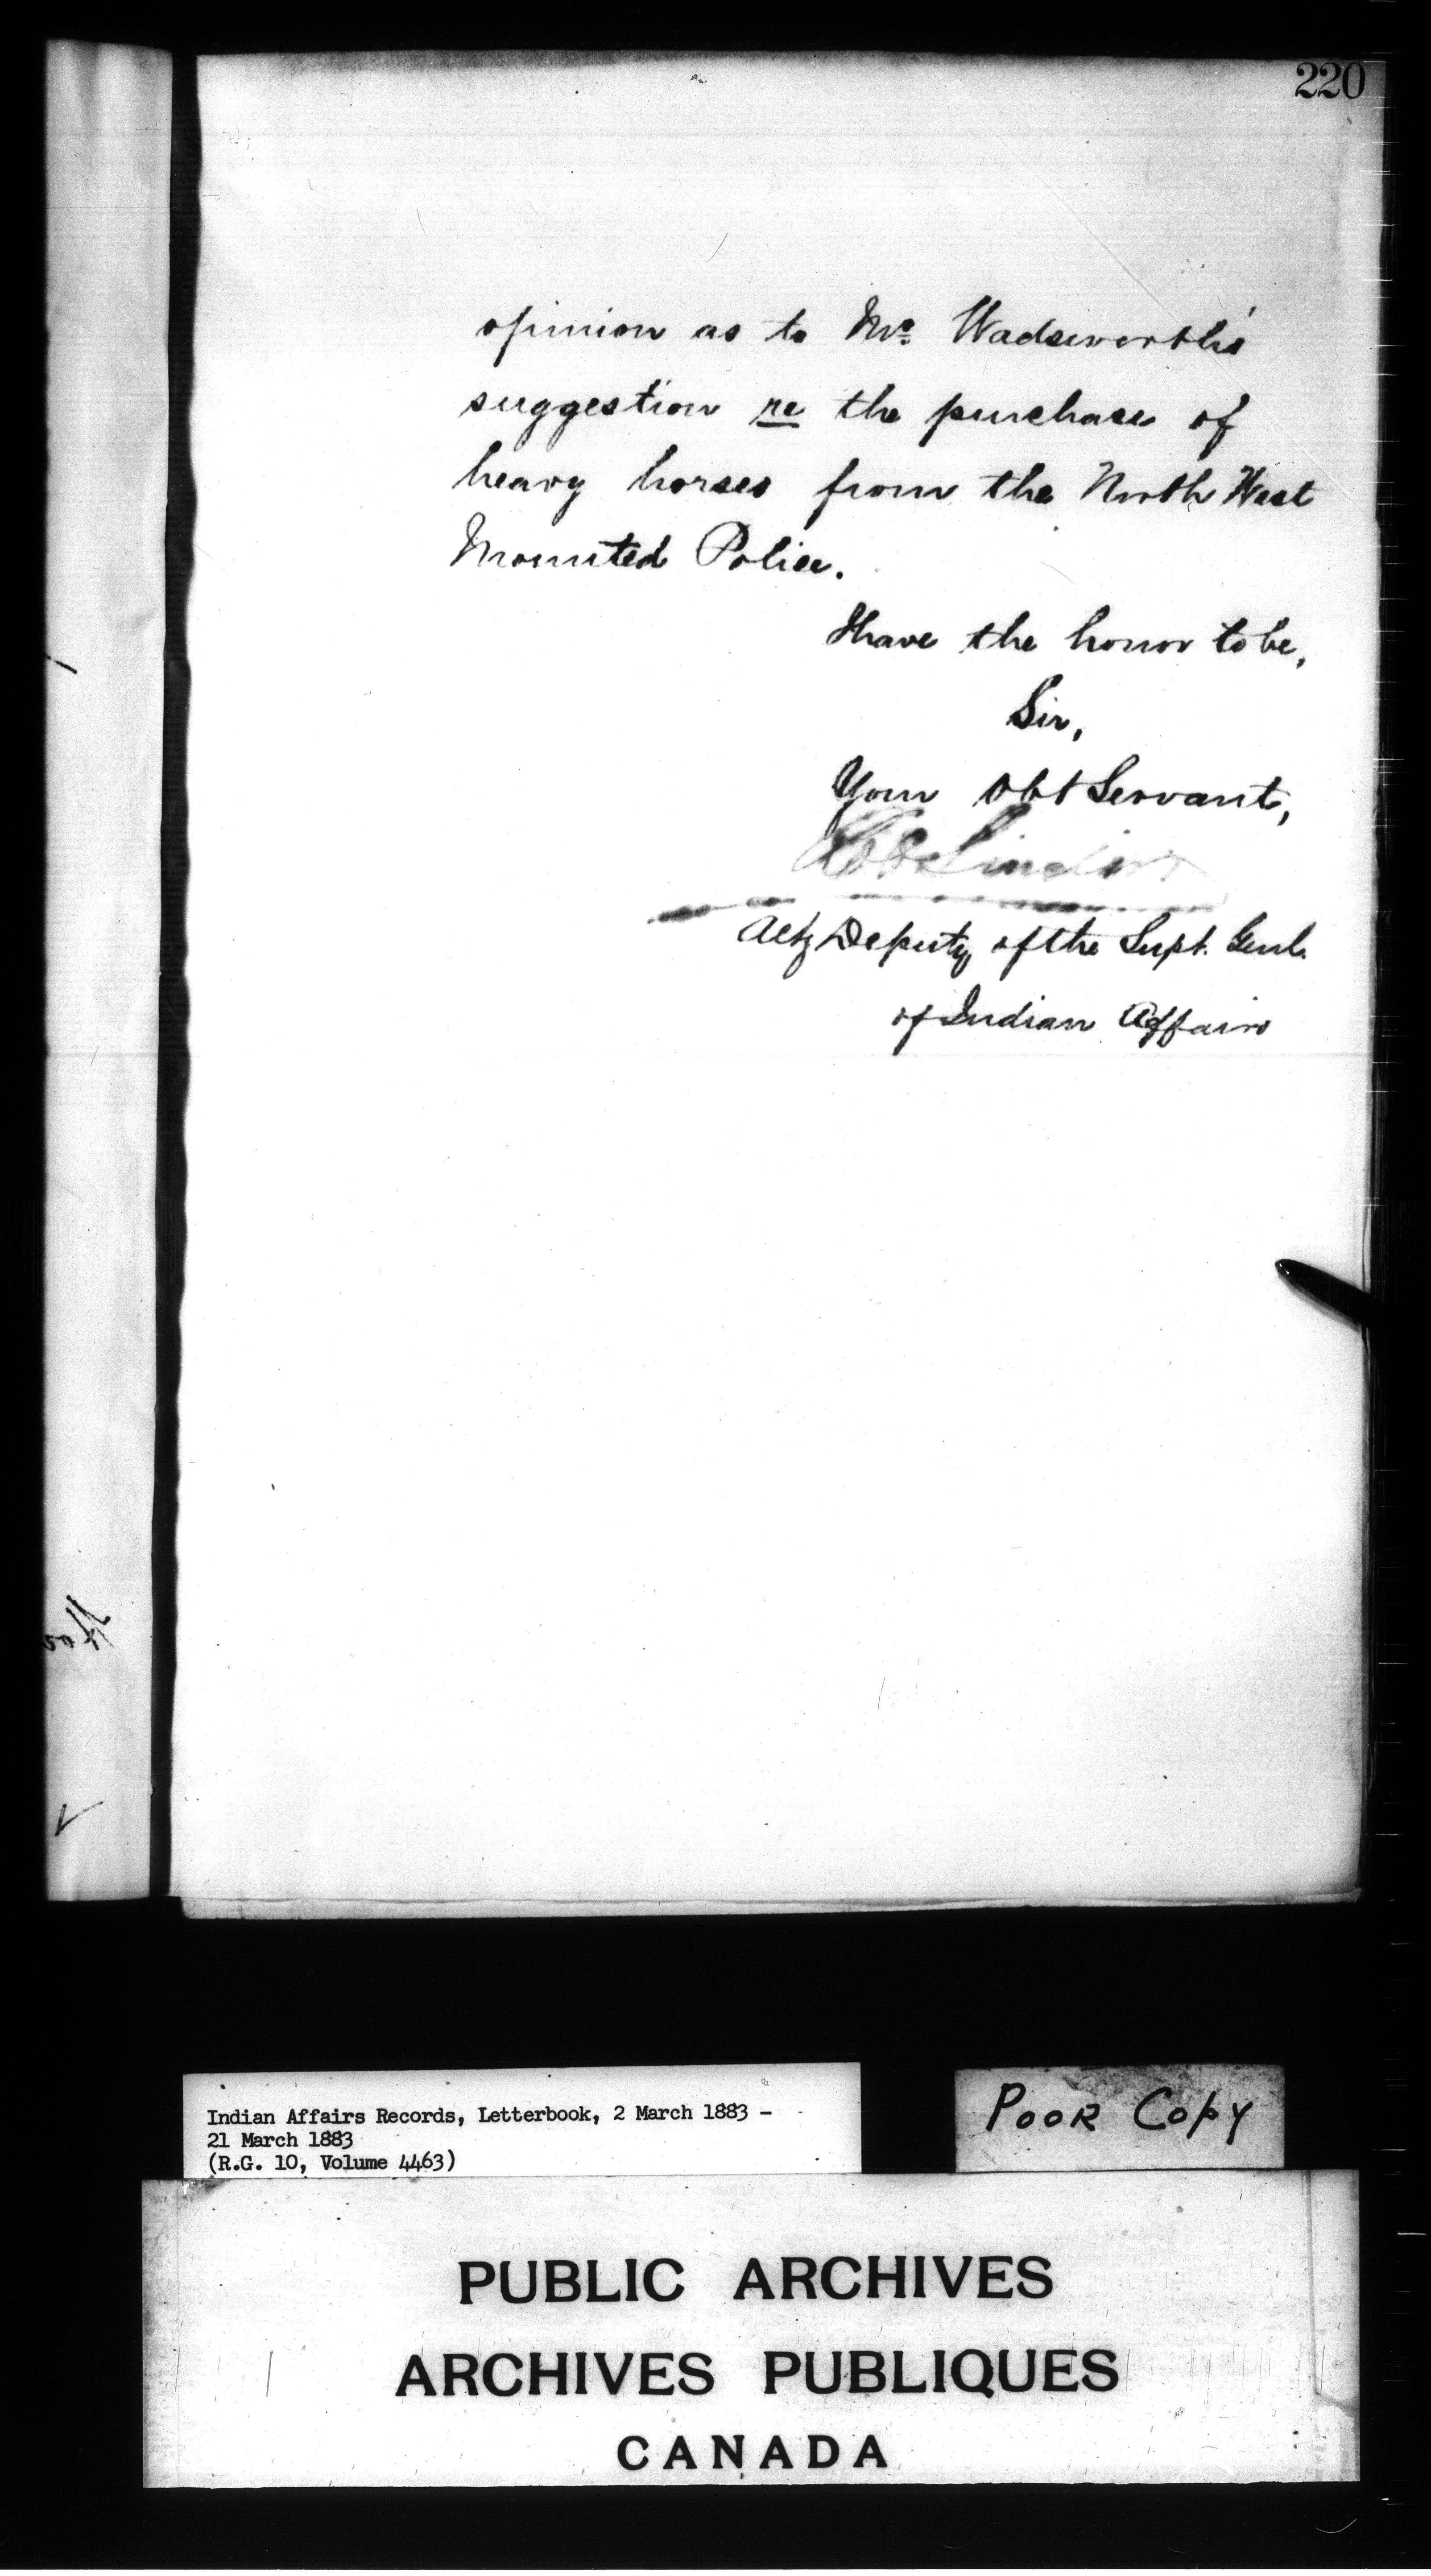 220
opinion as to Mr. Wadsworth's
suggestion re the purchase of
heavy horses from the North West
Mounted Police.
I have the honor to be,
Sir,
Your Obt Servant,
Actg Deputy of the Supt. Genl.
of Indian Affairs
Indian Affairs Records, Letterbook, 2 March 1883 -
21 March 1883
(R.G. 10, Volume 4463)
POOR COPY
PUBLIC ARCHIVES
ARCHIVES PUBLIQUES
CANADA